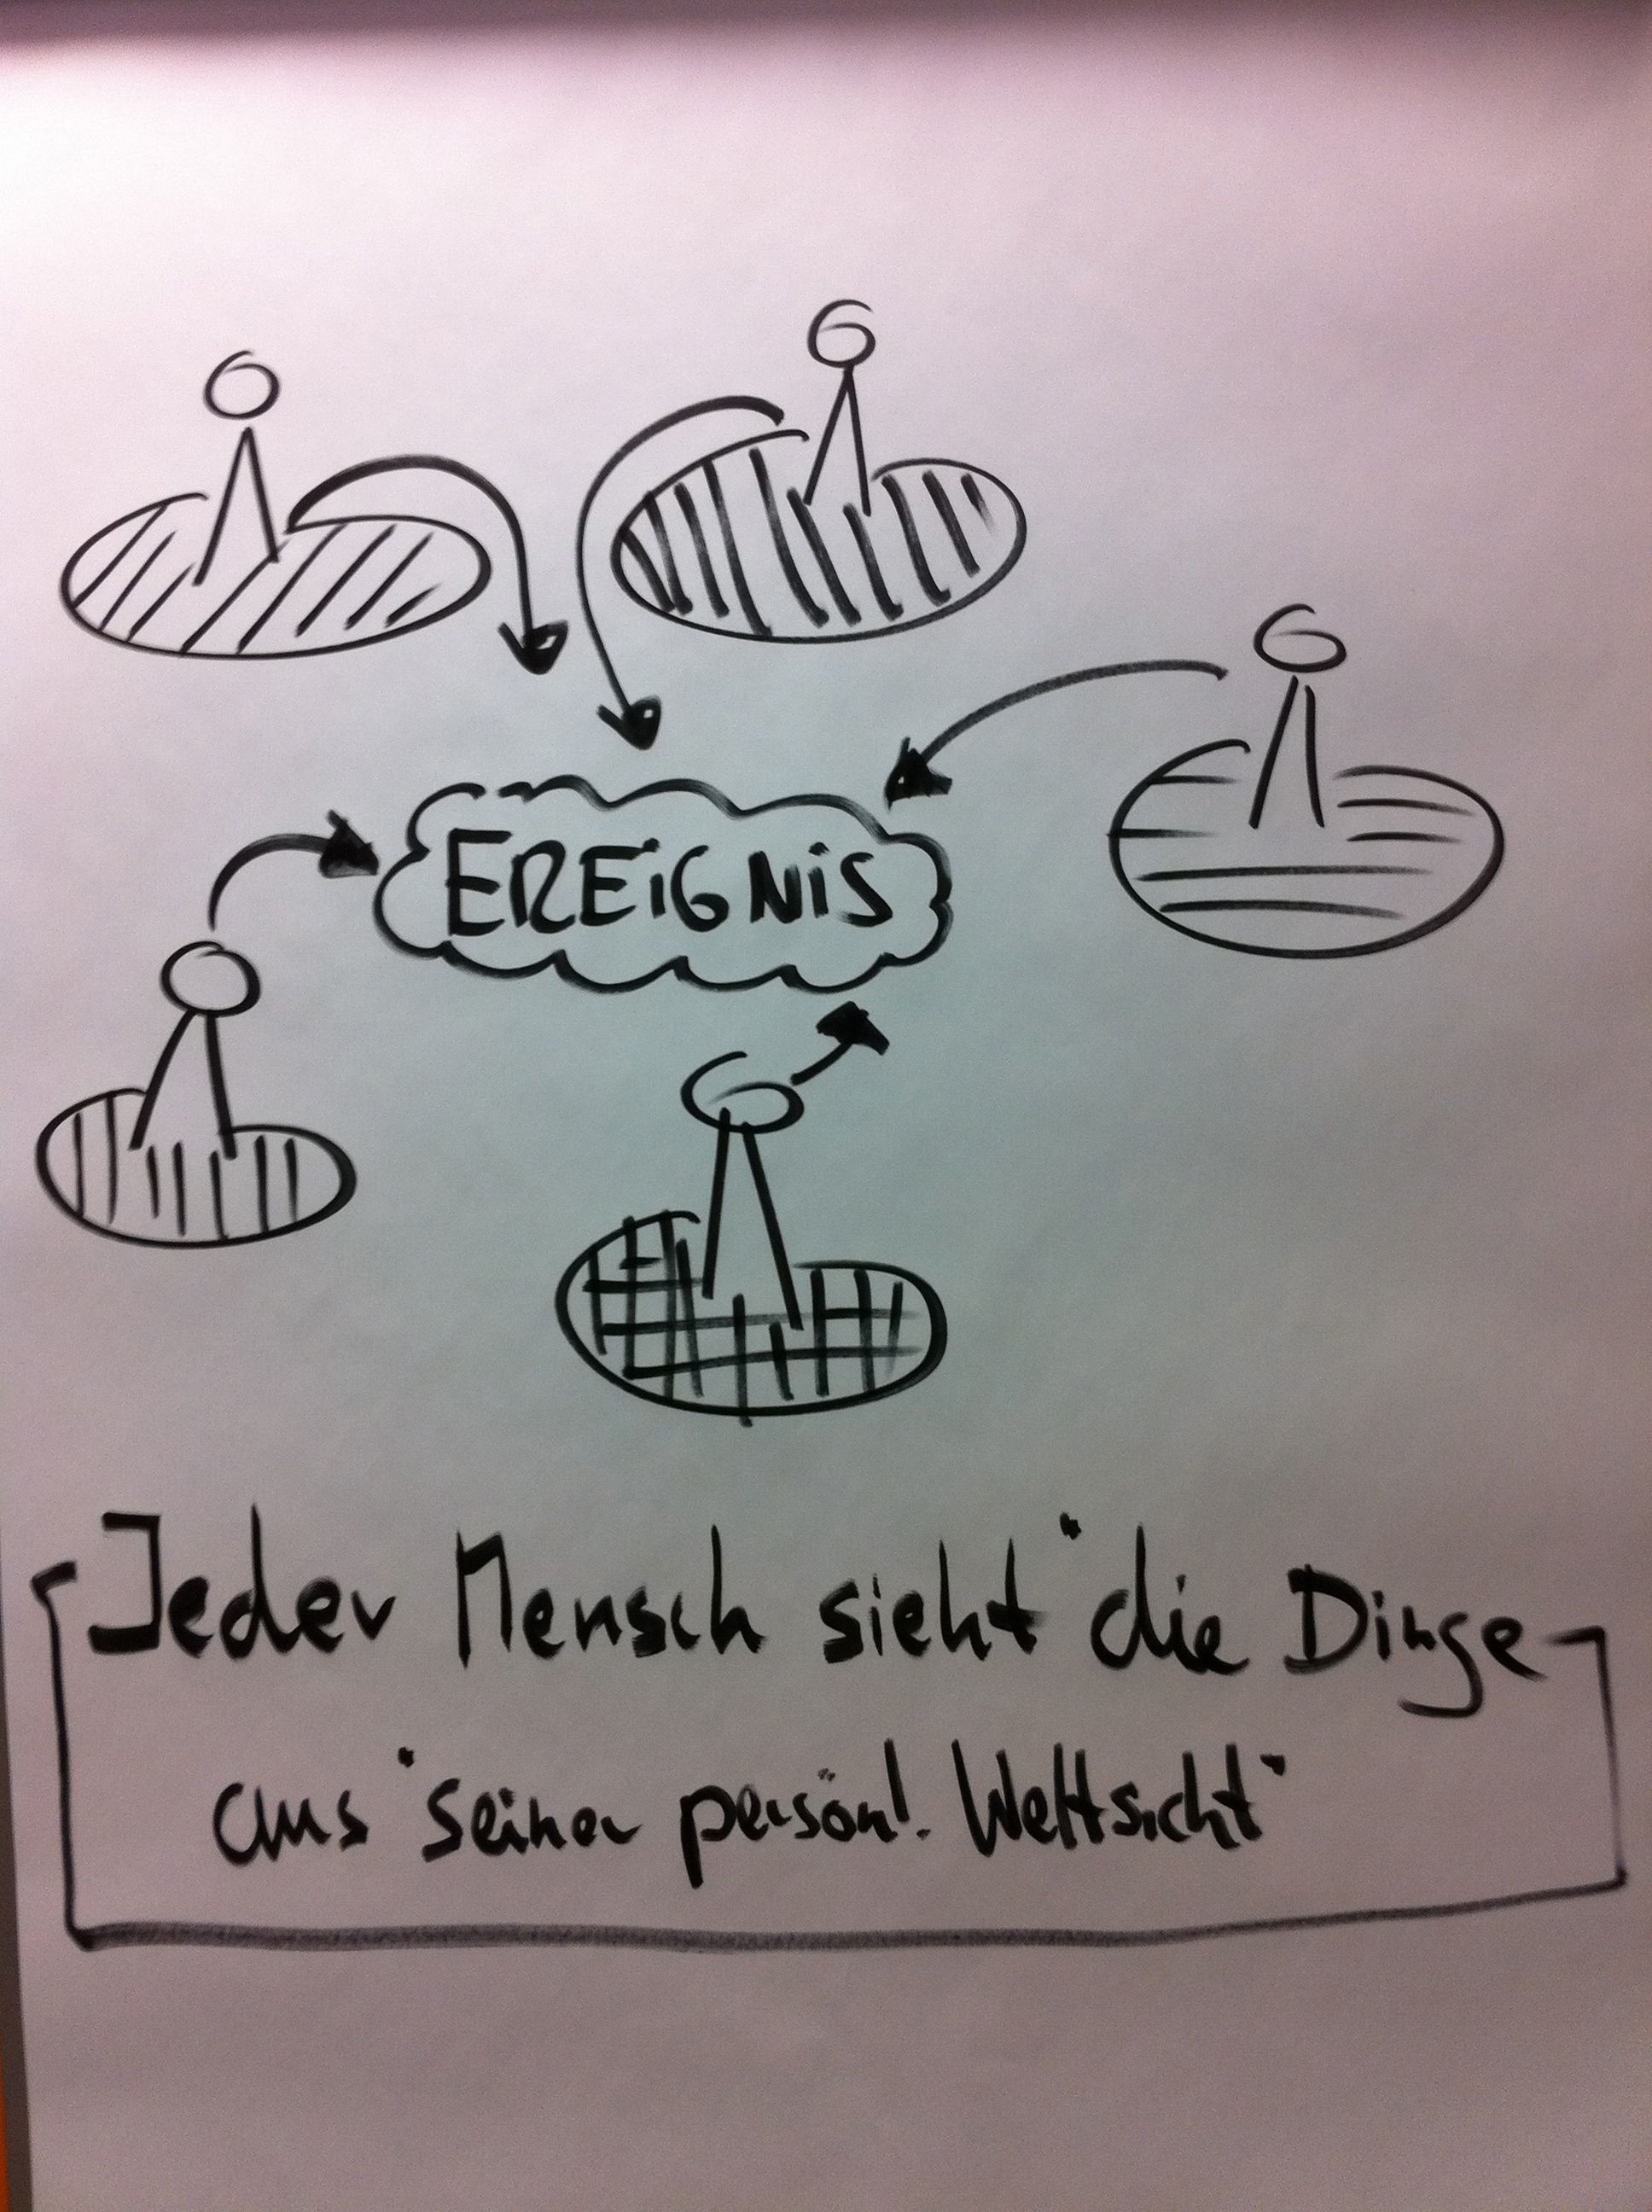 EREiGNiS
Jeder Mensch sieht "die Dinge
aus "seiner persönl. Weltsicht"